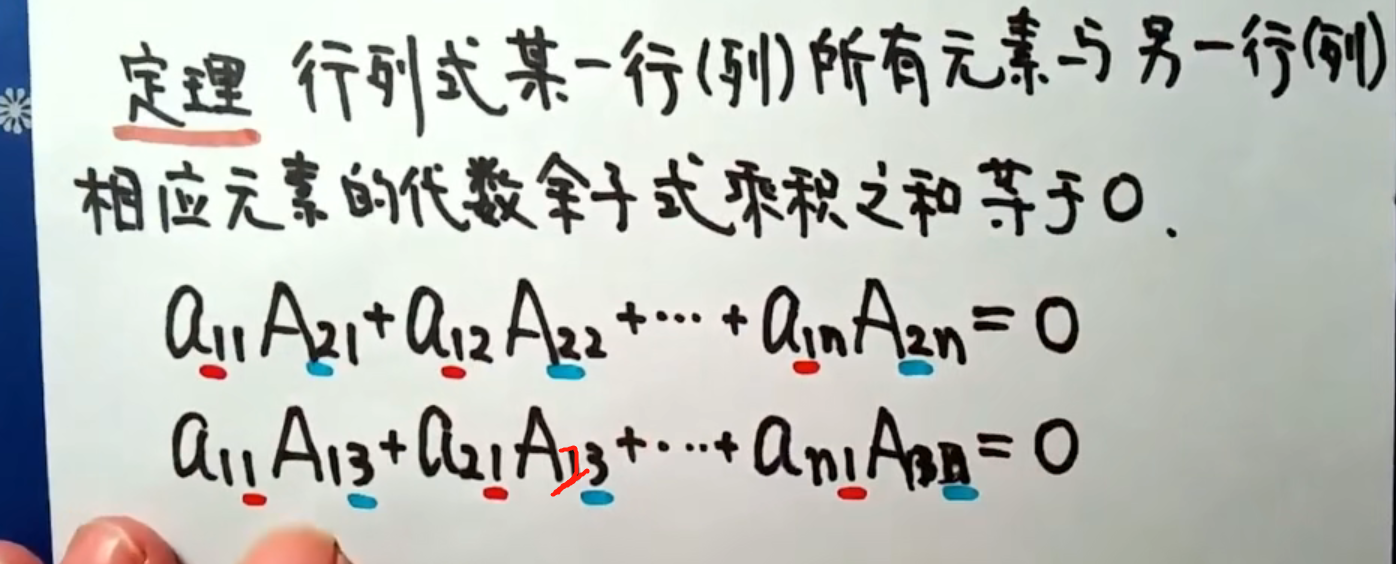 定理 行列式某一行(列)所有元素与另一行(列)
相应元素的代数余子式乘积之和等于0.
a₁₁A₂₁+a₁₂A₂₂+⋯+a₁ₙA₂ₙ=0
a₁₁A₁₃+a₂₁A₂₃+⋯+aₙ₁A=0